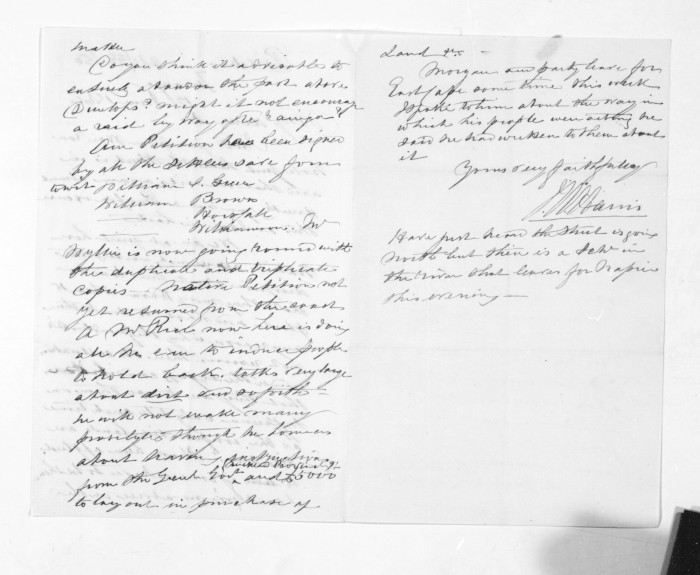 matter
Do you think it advisable to
entirely abandon the post above
Dunlops? might it not encourage
a raid by way of the "Arega"
Our Petition has been signed
by all the Settlers save four
to wit William S. Greer
William Brown
Horsfall
Williamson. Mr
Wyllie is now going round with
the duplicate and triplicate
copies - Native Petition not
yet returned from the coast
A Mr Rich now here is doing
all he can to induce people
to hold back, talks very large
about dirt and so forth -
he will not make many
proselytes though he
about having instructions
from the Genl. Govt. and £5000
to lay out in purchase of
Land &c -
Morgan and party leave for
East Cape some time this week
I spoke to him about the way in
which his people were acting he
said he had written to them about
it
Yours very faithfully
J W Harris
Have just heard the Sturt is going
North but there is a Schr in
the river that leaves for Napier
this evening -